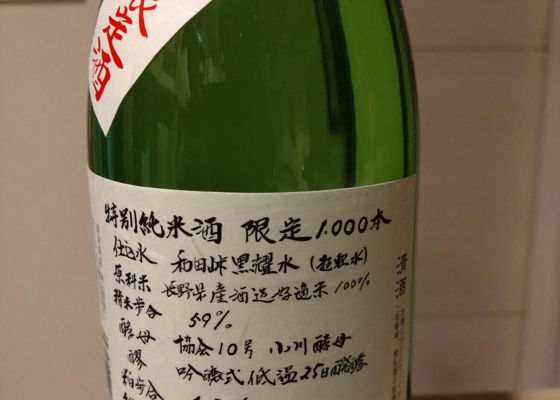 定酒
特別純米酒 限定1.000本
仕込水 和田峠黒耀水(超軟水)
原料米 長野県産酒造好適米100%
精米歩合 59%
酵母 協会10号 小川酵母
醪 吟醸式低温25日醗酵
粕歩合
清酒